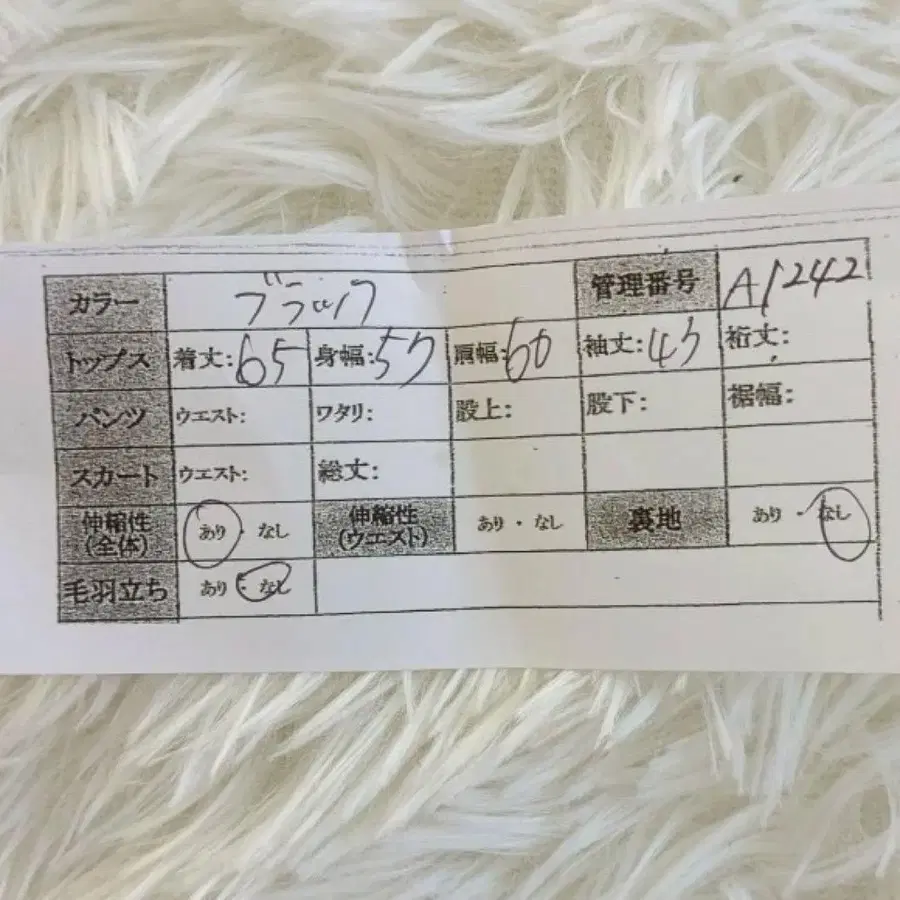 カラー ブラック 管理番号 A1242
トップス 着丈:65 身幅:57 肩幅:60 袖丈:47 裄丈:
パンツ ウエスト: ワタリ: 股上: 股下: 裾幅:
スカート ウエスト: 総丈:
伸縮性(全体) あり・なし 伸縮性(ウエスト) あり・なし 裏地 あり・なし
毛羽立ち あり・なし